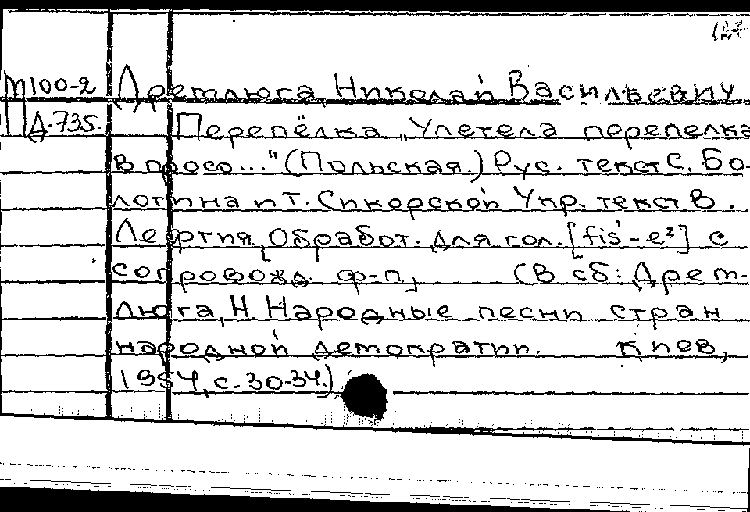 М100-2 Дремлюга, Николай Васильевич.
Д-735. Перепёлка „Улетела перепелка
в просо..." (Польская.) Рус. текст С. Бо-
лотина и Т. Сикорской Укр. текст В.
Лефтия, [Обработ. для гол. [fis'-e²] с
сопровожд. ф-п.] (В сб: Дрем-
люга, Н. Народные песни стран
народной демократии. Киев,
1954, с. 30-34.)